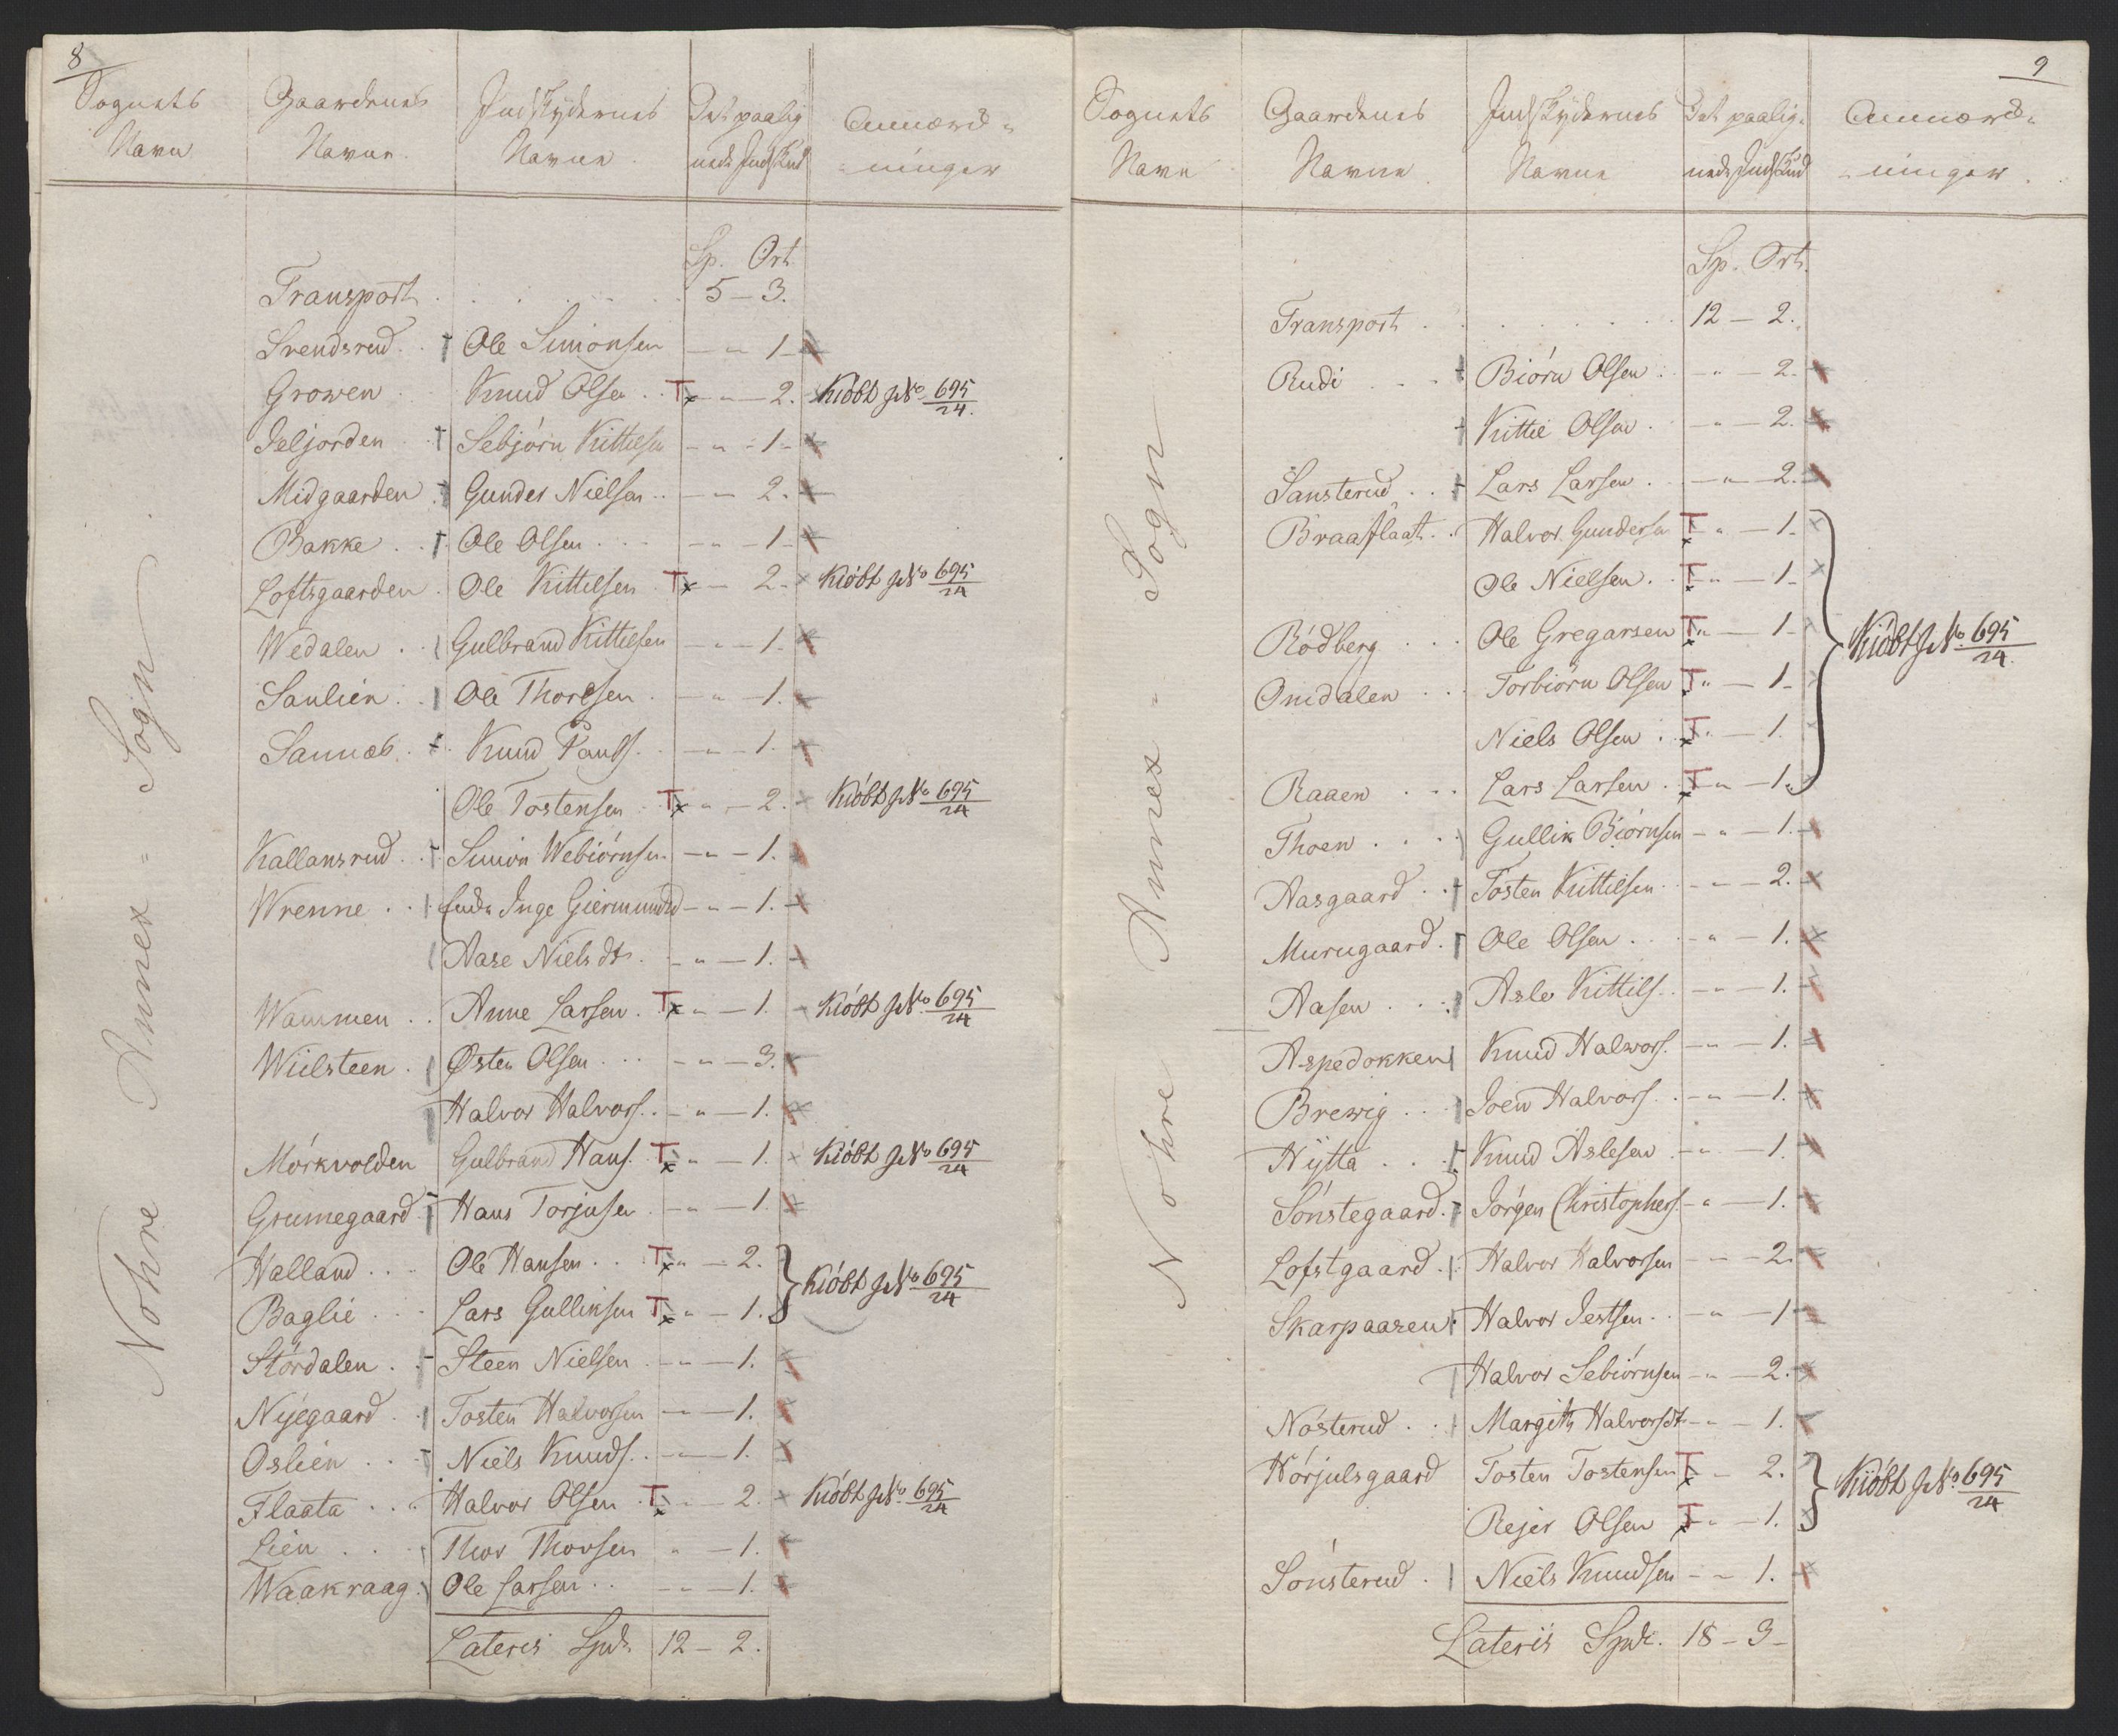 8
Sognets Navn | Gaardenes Navne. | Indskydernes Navne. | Det paalignede Indskud | Anmærkninger
Nohre Annex = Sogn
Sp. Ort
Transport . . . . . 5 – 3.
Svendsrud . . Ole Simonsen – " – 1 –
Growen . . Knud Olsen . . T x – " – 2. Kiöbt J No 695/24.
Jeljorden . . Sebjörn Kittelsen – " – 1 –
Midgaarden . Gunder Nielsen . . – " – 2. –
Bakke . . Ole Olsen . . . – " – 1 –
Loftsgaarden . Ole Kittelsen T x – 2 – Kiöbt J No 695/24
Wedalen . . Gulbrand Kittelsen – " – 1.
Saulien . . Ole Thoresen . – " – 1.
Sannæs . . Knud Pauls. . – " – 1.
Ole Tostensen . T x " – 2. Kiöbt J No 695/24
Kallansrud . . Simon Webiörnsen – " – 1.
Wrenne . . Enke Inge Giermundsd – " – 1.
Aase Nielsdtr . – " – 1.
Wammen . . Anne Larsen . T x " – 1. Kiöbt J No 695/24
Wiilsteen . Østen Olsen . . . – " – 3.
Halvor Halvors. . – " – 1.
Mörkvolden Gulbrand Hans. T x " – 1. Kiöbt J No 695/24
Grumegaard . Hans Torjusen . – " – 1.
Halland . . . Ole Hansen . . T x " – 2.
Baglie . . . Lars Gulliksen T x " – 1. } Kiöbt J No 695/24
Stördalen . . Steen Nielsen . – " – 1.
Nÿegaard . . Tosten Halvorsen – " – 1.
Oslien . . . Niels Knuds. . – " – 1.
Flaata . . . Halvor Olsen . T x – " – 2. Kiöbt J No 695/24
Lien . . . Thor Thorsen " – 1.
Waakraag . Ole Larsen . . – " – 1.
Lateris Spd. 12 – 2.
9
Sognets Navn | Gaardenes Navne. | Indskydernes Navne | Det paalignede Indskud | Anmærkninger.
Nohre Annex = Sogn
Sp. Ort.
Transport . . . . . . 12 – 2.
Rudi . . . Biörn Olsen . – " – 2.
Kittil Olsen . – " – 2.
Sansterud . . Lars Larsen . – " – 2.
Braaflaat . . Halvor Gundersen T x " – 1.
Ole Nielsen . . T x " – 1 –
Rödberg . . . Ole Gregarsen T x " – 1 –
Omdalen . . . Torbiörn Olsen T x " – 1 –
Niels Olsen . . T x " – 1.
Raaen . . . Lars Larsen . T x " – 1. } Kiöbt J No. 695/24.
Thoen . . . Gullik Biörnsen – " – 1.
Aasgaard . . Tosten Kittilsen . – " – 2.
Murugaard . Ole Olsen . . – " – 1.
Aasen . . . Asle Kittils. . – " – 1.
Aspedokken Knud Halvors. – " – 1.
Brewig . . . Joen Halvors. . – " – 1.
Nÿtta . . . Knud Aslesen . – " – 1.
Sönstegaard . Jörgen Christophers. – " – 1.
Lofstgaard . Halvor Halvorsen – " – 2.
Skarpaasen . Halvor Jertsen . . – " – 1
Halvor Sebiörnsen – " – 2.
Nösterud . . Margith Halvorsdt – " – 1.
Hörjulsgaard Tosten Tostensen T x – 2.
Rejer Olsen T x " – 1. } Kiöbt J No. 695/24
Sönsterud . Niels Knudsen – " 1.
Lateris Spd. 18 – 3 –